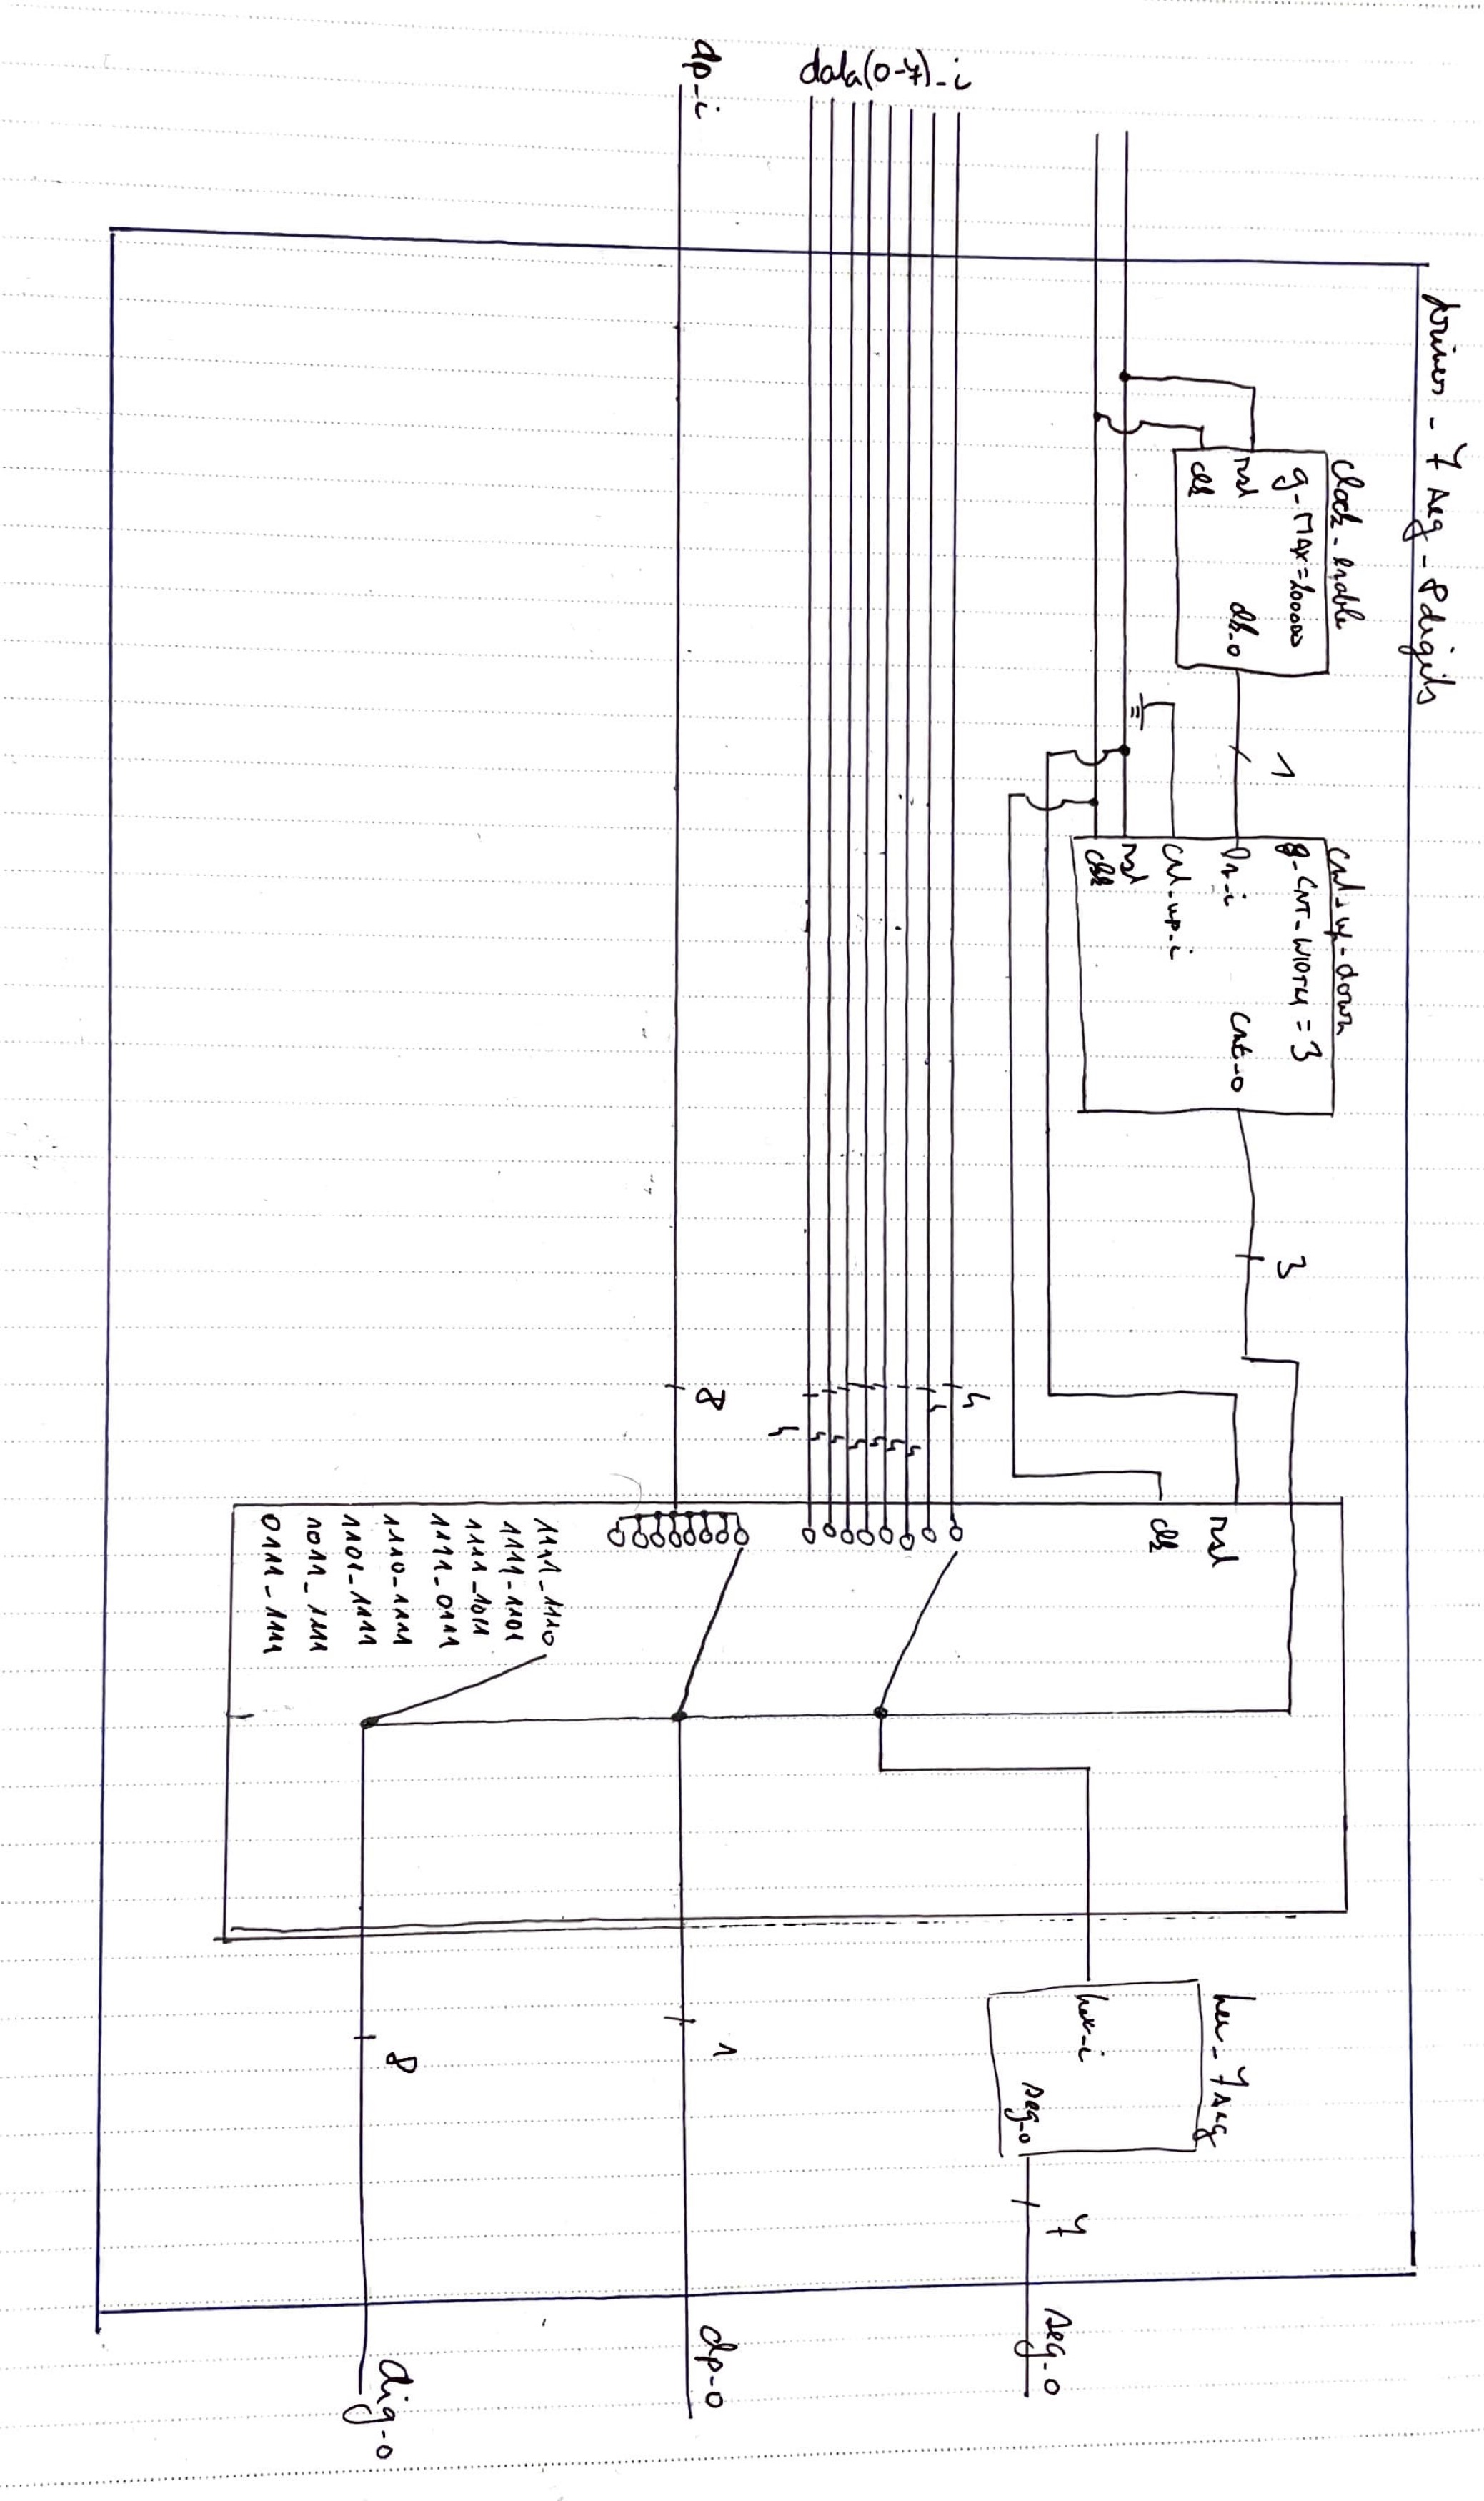 driver - 7 seg - 8digits
clock_enable
g_MAX=200000
rst
clk
ce_o
1
cnt_up_down
g_CNT_WIDTH = 3
en_i
cnt_up_i
rst
clk
cnt_o
3
data(0-7)_i
4
4
4
4
4
4
4
4
dp_i
8
rst
clk
1111_1110
1111_1101
1111_1011
1111_0111
1110_1111
1101_1111
1011_1111
0111_1111
hex_7seg
hex_i
seg_o
7
seg_o
1
dp_o
8
dig_o